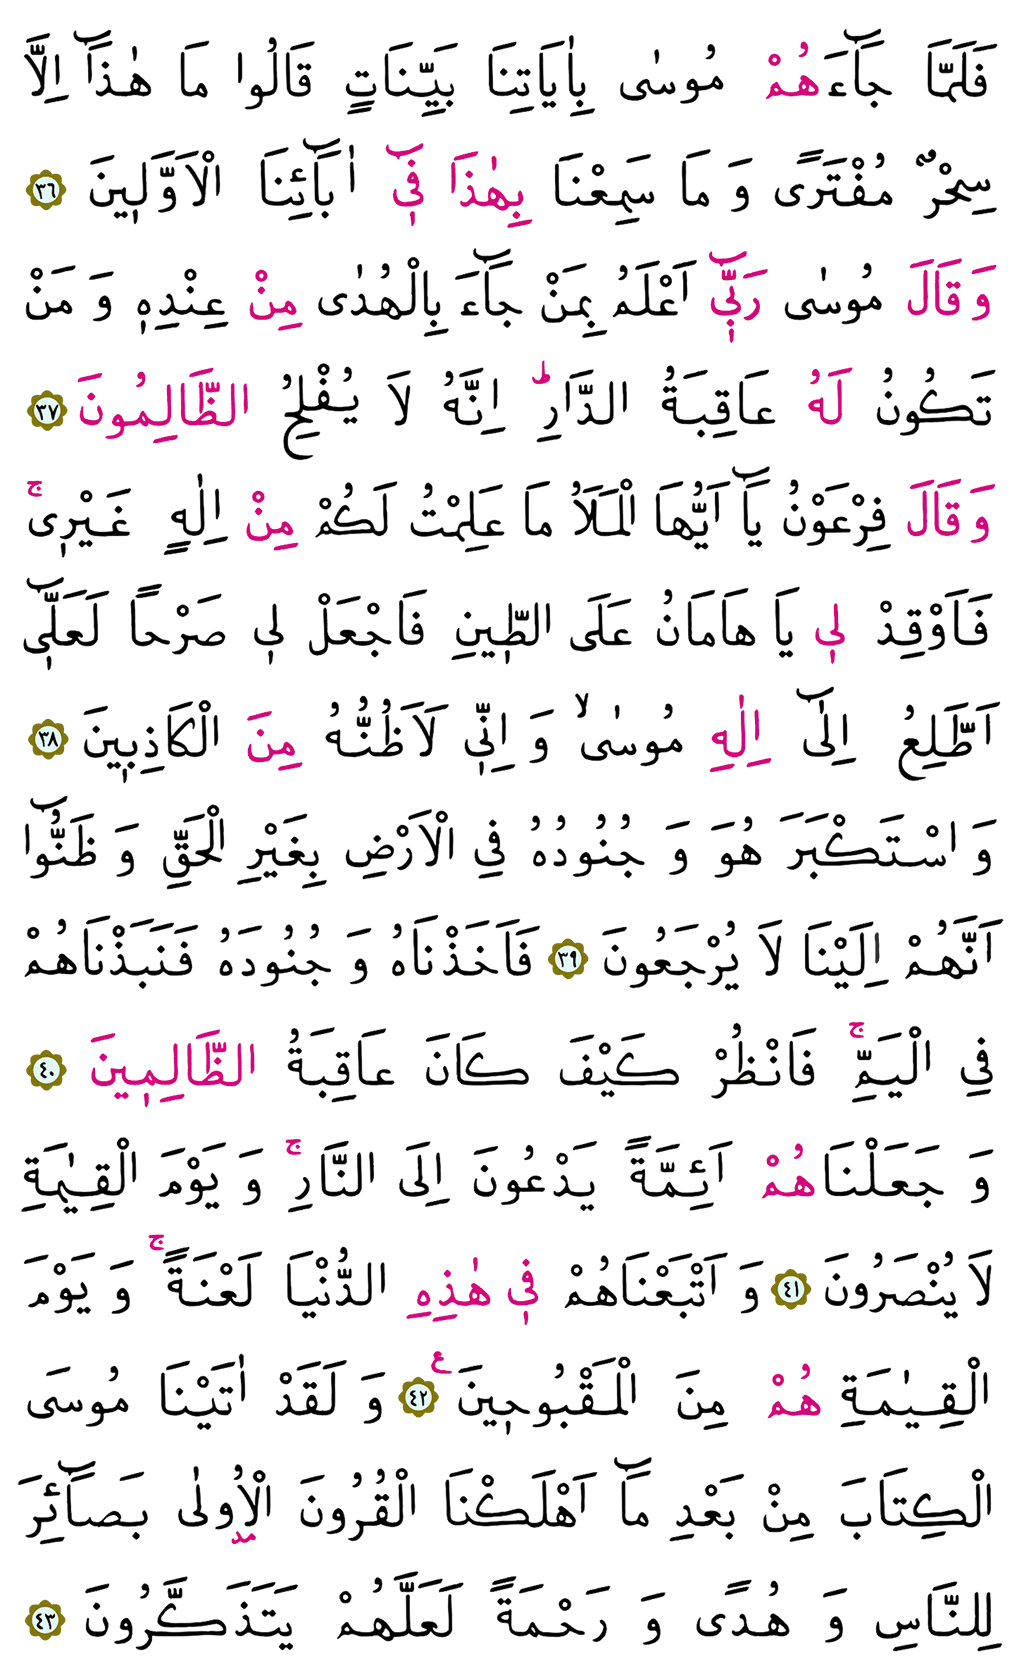 فَلَمَّا جَٓاءَهُمْ مُوسٰى بِاٰيَاتِنَا بَيِّنَاتٍ قَالُوا مَا هٰذَٓا اِلَّا
سِحْرٌ مُفْتَرًى وَ مَا سَمِعْنَا بِهٰذَا ف۪ٓي اٰبَٓائِنَا الْاَوَّل۪ينَ ﴿٣٦﴾
وَ قَالَ مُوسٰى رَبّ۪ٓي اَعْلَمُ بِمَنْ جَٓاءَ بِالْهُدٰى مِنْ عِنْدِه۪ وَ مَنْ
تَكُونُ لَهُ عَاقِبَةُ الدَّارِۜ اِنَّهُ لَا يُفْلِحُ الظَّالِمُونَ ﴿٣٧﴾
وَ قَالَ فِرْعَوْنُ يَٓا اَيُّهَا الْمَلَاُ مَا عَلِمْتُ لَكُمْ مِنْ اِلٰهٍ غَيْر۪يۚ
فَاَوْقِدْ ل۪ي يَا هَامَانُ عَلَى الطّ۪ينِ فَاجْعَلْ ل۪ي صَرْحًا لَعَلّ۪ٓي
اَطَّلِعُ اِلٰٓى اِلٰهِ مُوسٰىۙ وَ اِنّ۪ي لَاَظُنُّهُ مِنَ الْكَاذِب۪ينَ ﴿٣٨﴾
وَ اسْتَكْبَرَ هُوَ وَ جُنُودُهُ فِي الْاَرْضِ بِغَيْرِ الْحَقِّ وَ ظَنُّٓوا
اَنَّهُمْ اِلَيْنَا لَا يُرْجَعُونَ ﴿٣٩﴾ فَاَخَذْنَاهُ وَ جُنُودَهُ فَنَبَذْنَاهُمْ
فِي الْيَمِّۚ فَانْظُرْ كَيْفَ كَانَ عَاقِبَةُ الظَّالِم۪ينَ ﴿٤٠﴾
وَ جَعَلْنَاهُمْ اَئِمَّةً يَدْعُونَ اِلَى النَّارِۚ وَ يَوْمَ الْقِيٰمَةِ
لَا يُنْصَرُونَ ﴿٤١﴾ وَ اَتْبَعْنَاهُمْ ف۪ي هٰذِهِ الدُّنْيَا لَعْنَةًۚ وَ يَوْمَ
الْقِيٰمَةِ هُمْ مِنَ الْمَقْبُوح۪ينَ ع ﴿٤٢﴾ وَ لَقَدْ اٰتَيْنَا مُوسَى
الْكِتَابَ مِنْ بَعْدِ مَٓا اَهْلَكْنَا الْقُرُونَ الْاُو۫لٰى بَصَٓائِرَ
لِلنَّاسِ وَ هُدًى وَ رَحْمَةً لَعَلَّهُمْ يَتَذَكَّرُونَ ﴿٤٣﴾